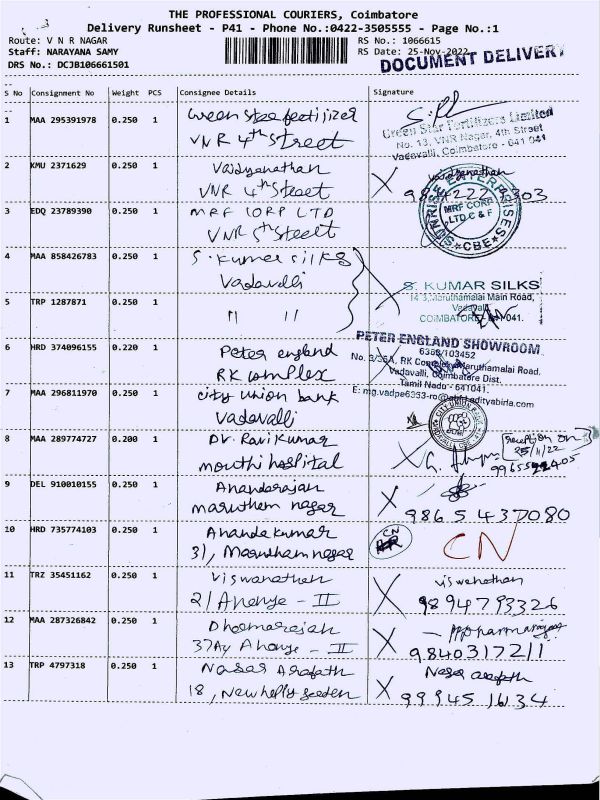 THE PROFESSIONAL COURIERS, Coimbatore
Delivery Runsheet - P41 - Phone No.:0422-3505555 - Page No.:1
Route: V N R NAGAR
RS No.: 1066615
Staff: NARAYANA SAMY
RS Date: 25-Nov-2022
DRS No.: DCJB106661501
DOCUMENT DELIVERY
S No Consignment No Weight PCS Consignee Details Signature
1 MAA 295391978 0.250 1
VNR 4th Street
Green Star Fertilizers Limited
No. 13, VNR Nagar, 4th Street
Vadavalli, Coimbatore - 641 041
2 KMU 2371629 0.250 1 Vaidyanathan
VNR 4th Street
X Vaidyanathan
3 EDQ 23789390 0.250 1 MRF CORP LTD
VNR 5th Street
SUNRISE ENTERPRISES
MRF CORP
LTD C & F
CBE
4 MAA 858426783 0.250 1 S. Kumar silks
Vadavalli
S. KUMAR SILKS
14 3, Maruthamalai Main Road,
Vadavalli,
COIMBATORE - 641-041.
5 TRP 1287871 0.250 1 " "
6 HRD 374096155 0.220 1 Peter england
RK complex
PETER ENGLAND SHOWROOM
No. 3/35A, RK Complex, Maruthamalai Road.
Vadavalli, Coimbatore Dist.
Tamil Nadu - 641041.
7 MAA 296811970 0.250 1 city union bank
Vadavalli
CITY UNION BANK
8 MAA 289774727 0.200 1 Dr. Ravi Kumar
mouthi hospital
X
reception on
25/11/22
9 DEL 910010155 0.250 1 Anandarajan
marutham nagar
X
98654 37080
10 HRD 735774103 0.250 1 Ananda kumar
31, Marudham nagar
CN
CN
11 TRZ 35451162 0.250 1 Viswanathan
X viswanathan
9894793326
12 MAA 287326842 0.250 1 Dharmarajan
X
9840317211
13 TRP 4797318 0.250 1 Nasar Arafath
X Nasar arafath